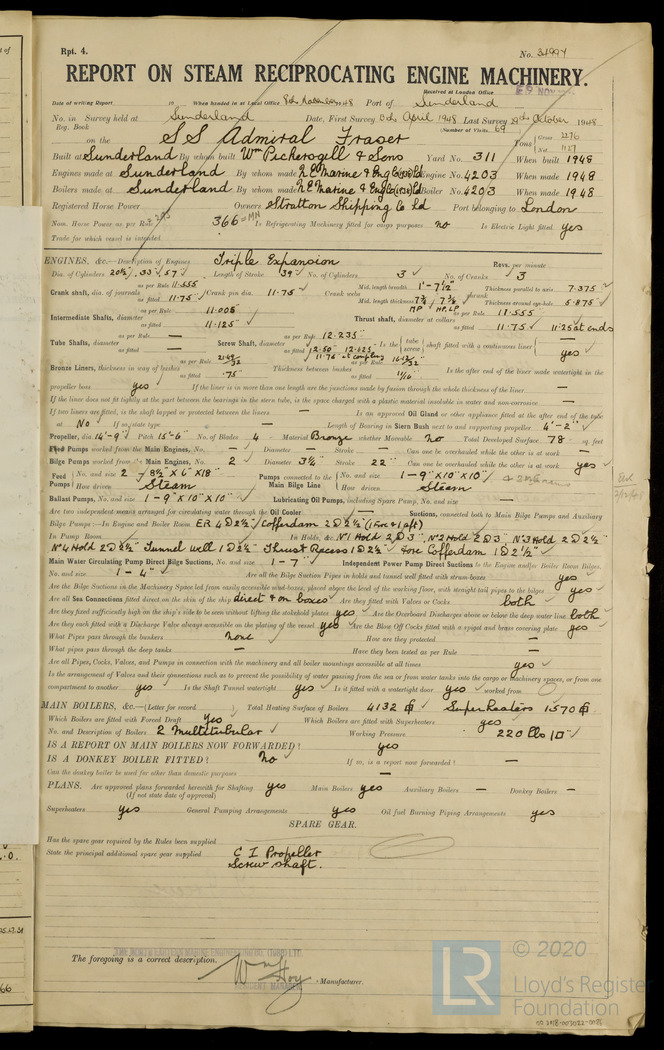 Rpt. 4.
No. 31994
REPORT ON STEAM RECIPROCATING ENGINE MACHINERY.
Received at London Office
Date of writing Report 19 When handed in at Local Office 8th November 1948 Port of Sunderland
No. in Survey held at Sunderland Date, First Survey April 1948 Last Survey October 1948
Reg. Book (Number of Visits 69)
on the SS Admiral Fraser Tons Gross 2276 Net 1127
Built at Sunderland By whom built Wm Pickersgill & Sons Yard No. 311 When built 1948
Engines made at Sunderland By whom made N.E. Marine & Eng Co (1938) Ld Engine No. 4203 When made 1948
Boilers made at Sunderland By whom made N.E. Marine & Eng Co (1938) Ld Boiler No. 4203 When made 1948
Registered Horse Power Owners Stratton Shipping Co Ld Port belonging to London
Nom. Horse Power as per Rule 366 = MN Is Refrigerating Machinery fitted for cargo purposes no Is Electric Light fitted yes
Trade for which vessel is intended
ENGINES, &c.—Description of Engines Triple Expansion Revs. per minute
Dia. of Cylinders 20½, 33, 57 Length of Stroke 39 No. of Cylinders 3 No. of Cranks 3
Crank shaft, dia. of journals as per Rule 11.555 as fitted 11.75 Crank pin dia. 11.75 Crank webs Mid. length breadth 1'-7½" Mid. length thickness 7¾ 7⅜ MP HP.LP Thickness parallel to axis 7.375 shrunk Thickness around eye-hole 5.875
Intermediate Shafts, diameter as per Rule 11.005 as fitted 11.125 Thrust shaft, diameter at collars as per Rule 11.555 as fitted 11.75 11.25 at ends
Tube Shafts, diameter as per Rule — as fitted — Screw Shaft, diameter as per Rule 12.235 as fitted 12.50 12.625 11.75 at coupling Is the tube screw shaft fitted with a continuous liner — yes
Bronze Liners, thickness in way of bushes as per Rule as fitted .75 Thickness between bushes as per Rule as fitted 11/16 Is the after end of the liner made watertight in the
propeller boss yes If the liner is in more than one length are the junctions made by fusion through the whole thickness of the liner —
If the liner does not fit tightly at the part between the bearings in the stern tube, is the space charged with a plastic material insoluble in water and non-corrosive —
If two liners are fitted, is the shaft lapped or protected between the liners — Is an approved Oil Gland or other appliance fitted at the after end of the tube
at No If so, state type — Length of Bearing in Stern Bush next to and supporting propeller 4'-2"
Propeller, dia 14'-9" Pitch 15'-6" No. of Blades 4 Material Bronze whether Moveable no Total Developed Surface 78 sq. feet
Feed Pumps worked from the Main Engines, No. — Diameter — Stroke — Can one be overhauled while the other is at work —
Bilge Pumps worked from the Main Engines, No. 2 Diameter 3¾" Stroke 22" Can one be overhauled while the other is at work yes
Feed Pumps No. and size 2 8½" x 6" x 18" How driven Steam Pumps connected to the Main Bilge Line No. and size 1 - 9" x 10" x 10" How driven Steam
Ballast Pumps, No. and size 1 - 9" x 10" x 10" Lubricating Oil Pumps, including Spare Pump, No. and size —
Are two independent means arranged for circulating water through the Oil Cooler — Suctions, connected both to Main Bilge Pumps and Auxiliary
Bilge Pumps:—In Engine and Boiler Room ER 4 D 2½" Cofferdam 2 D 2½" (1 For & 1 aft)
In Pump Room In Holds, &c. No 1 Hold 2 D 3" No 2 Hold 2 D 3" No 3 Hold 2 D 2½"
No 4 Hold 2 D 2½" Tunnel well 1 D 2½" Thrust Recess 1 D 2½" Fore Cofferdam 1 D 2½"
Main Water Circulating Pump Direct Bilge Suctions, No. and size 1 - 7" Independent Power Pump Direct Suctions to the Engine and/or Boiler Room Bilges,
No. and size 1 - 4" Are all the Bilge Suction Pipes in holds and tunnel well fitted with strum-boxes yes
Are the Bilge Suctions in the Machinery Space led from easily accessible mud-boxes, placed above the level of the working floor, with straight tail pipes to the bilges yes
Are all Sea Connections fitted direct on the skin of the ship direct & on boxes Are they fitted with Valves or Cocks both
Are they fixed sufficiently high on the ship's side to be seen without lifting the stokehold plates yes Are the Overboard Discharges above or below the deep water line both
Are they each fitted with a Discharge Valve always accessible on the plating of the vessel yes Are the Blow Off Cocks fitted with a spigot and brass covering plate yes
What Pipes pass through the bunkers none How are they protected —
What pipes pass through the deep tanks — Have they been tested as per Rule —
Are all Pipes, Cocks, Valves, and Pumps in connection with the machinery and all boiler mountings accessible at all times yes
Is the arrangement of Valves and their connections such as to prevent the possibility of water passing from the sea or from water tanks into the cargo or machinery spaces, or from one
compartment to another yes Is the Shaft Tunnel watertight yes Is it fitted with a watertight door yes worked from
MAIN BOILERS, &c.—(Letter for record ) Total Heating Surface of Boilers 4132 Superheaters 1570
Which Boilers are fitted with Forced Draft yes Which Boilers are fitted with Superheaters yes
No. and Description of Boilers 2 Multitubular Working Pressure 220 lbs □"
IS A REPORT ON MAIN BOILERS NOW FORWARDED? yes
IS A DONKEY BOILER FITTED? No If so, is a report now forwarded? —
Can the donkey boiler be used for other than domestic purposes —
PLANS. Are approved plans forwarded herewith for Shafting yes Main Boilers yes Auxiliary Boilers — Donkey Boilers —
(If not state date of approval)
Superheaters yes General Pumping Arrangements yes Oil fuel Burning Piping Arrangements yes
SPARE GEAR.
Has the spare gear required by the Rules been supplied
State the principal additional spare gear supplied C I Propeller
Screw Shaft.
The foregoing is a correct description.
Manufacturer.
LR
© 2020
Lloyd's Register
Foundation